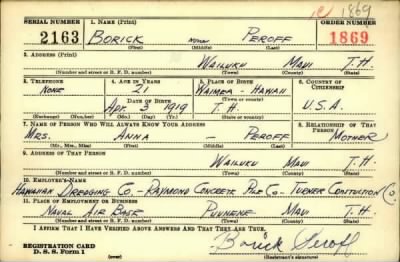 1869
SERIAL NUMBER 1. NAME (Print) ORDER NUMBER
2163 BORICK NONE PEROFF 1869
(First) (Middle) (Last)
2. ADDRESS (Print)
WAILUKU MAUI T.H.
(Number and street or R. F. D. number) (Town) (County) (State)
3. TELEPHONE 4. AGE IN YEARS 5. PLACE OF BIRTH 6. COUNTRY OF CITIZENSHIP
NONE 21 WAIMEA - HAWAII
(Town or county)
DATE OF BIRTH
APR. 3 1919 T.H. U.S.A.
(Exchange) (Number) (Mo.) (Day) (Yr.) (State or country)
7. NAME OF PERSON WHO WILL ALWAYS KNOW YOUR ADDRESS 8. RELATIONSHIP OF THAT PERSON
MRS. ANNA - PEROFF MOTHER
(Mr., Mrs., Miss) (First) (Middle) (Last)
9. ADDRESS OF THAT PERSON
WAILUKU MAUI T.H.
(Number and street or R. F. D. number) (Town) (County) (State)
10. EMPLOYER'S NAME
HAWAIIAN DREDGING CO. - RAYMOND CONCRETE PILE CO. - TURNER CO.
11. PLACE OF EMPLOYMENT OR BUSINESS
NAVAL AIR BASE PUUNENE MAUI T.H.
(Number and street or R. F. D. number) (Town) (County) (State)
I AFFIRM THAT I HAVE VERIFIED ABOVE ANSWERS AND THAT THEY ARE TRUE.
REGISTRATION CARD
D. S. S. Form 1
Borick Peroff
(Registrant's signature)